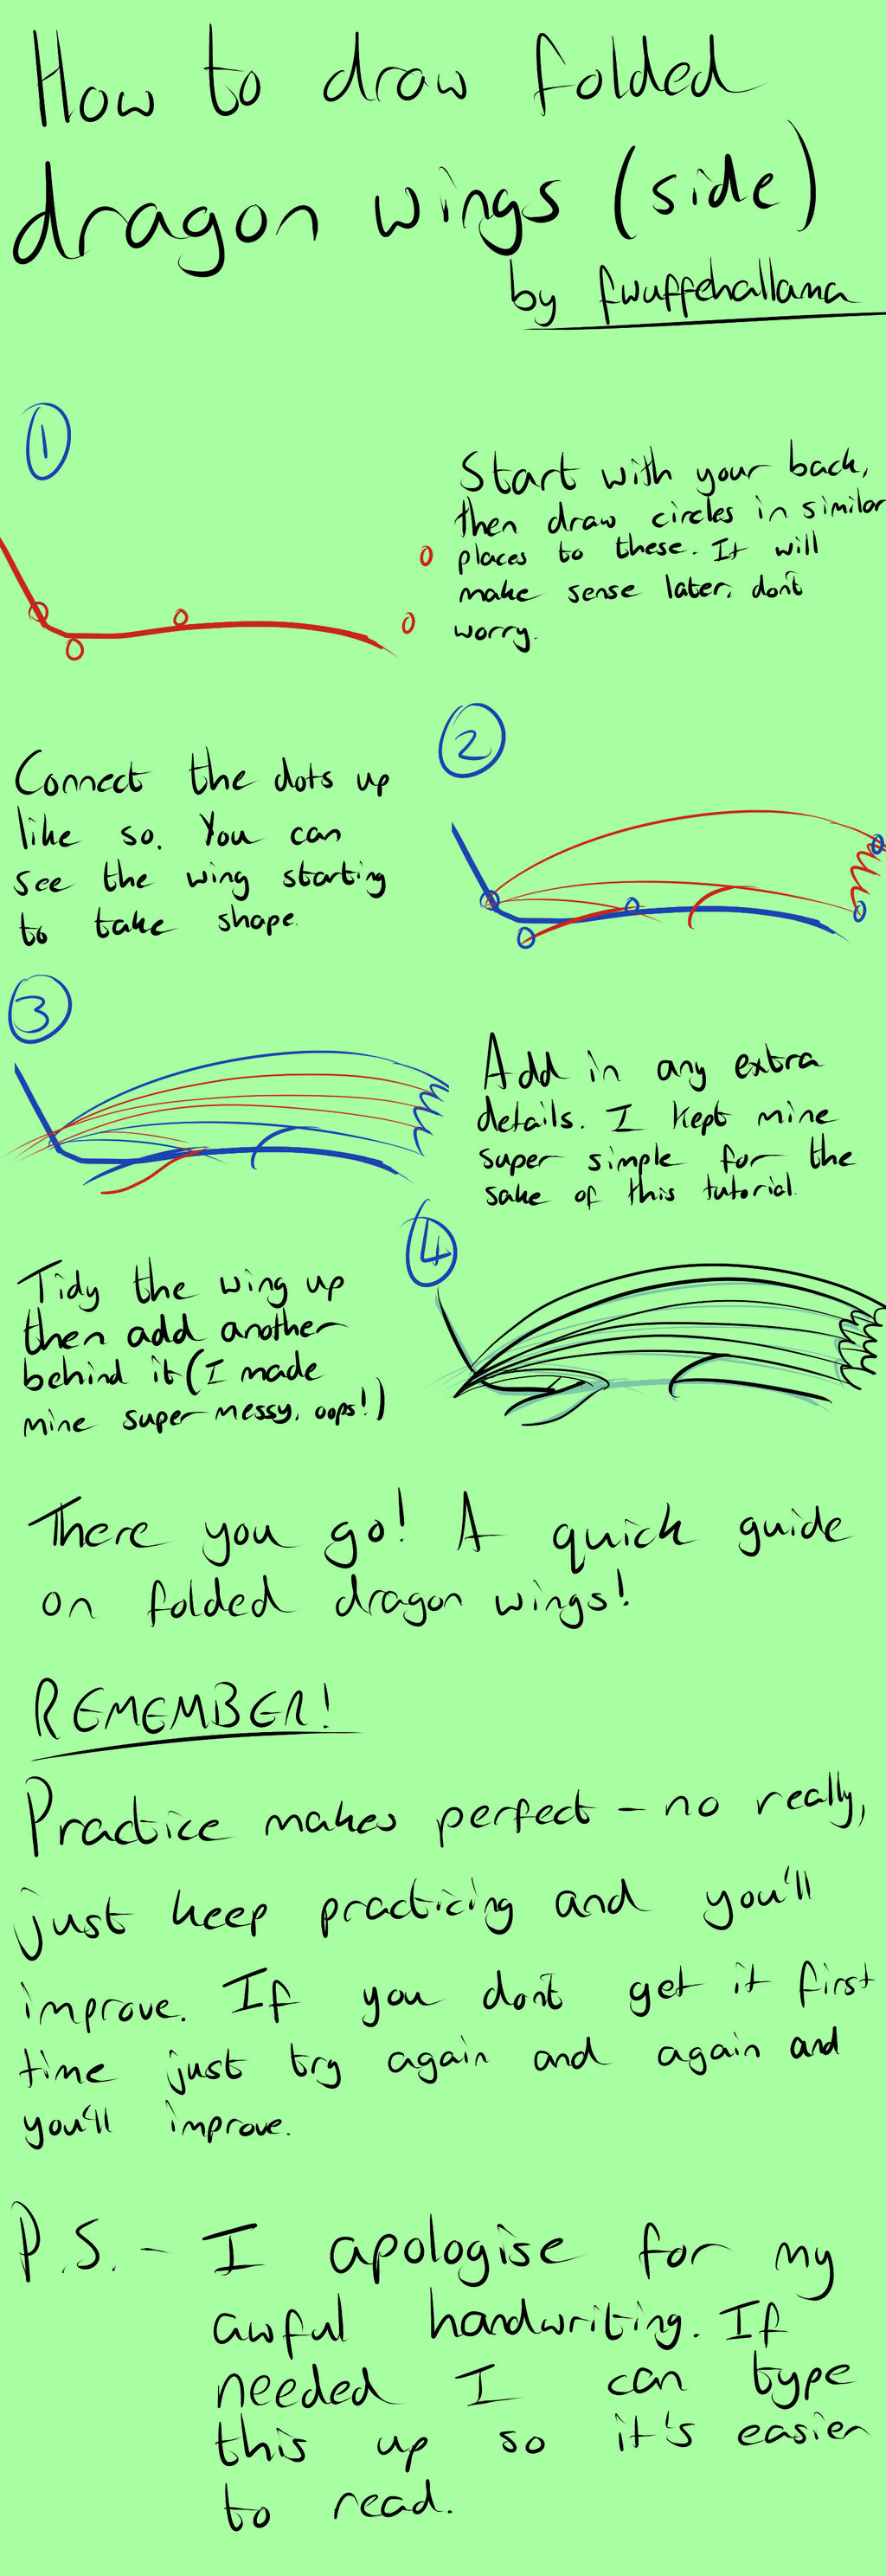 How to draw folded
dragon wings (side)
by fwuffehallama
1
Start with your back,
then draw circles in similar
places to these. It will
make sense later, don't
worry.
2
Connect the dots up
like so. You can
see the wing starting
to take shape.
3
Add in any extra
details. I kept mine
super simple for the
sake of this tutorial.
4
Tidy the wing up
then add another
behind it (I made
mine super messy, oops!)
There you go! A quick guide
on folded dragon wings!
REMEMBER!
Practice makes perfect - no really,
just keep practicing and you'll
improve. If you don't get it first
time just try again and again and
you'll improve.
P.S. - I apologise for my
awful handwriting. If
needed I can type
this up so it's easier
to read.